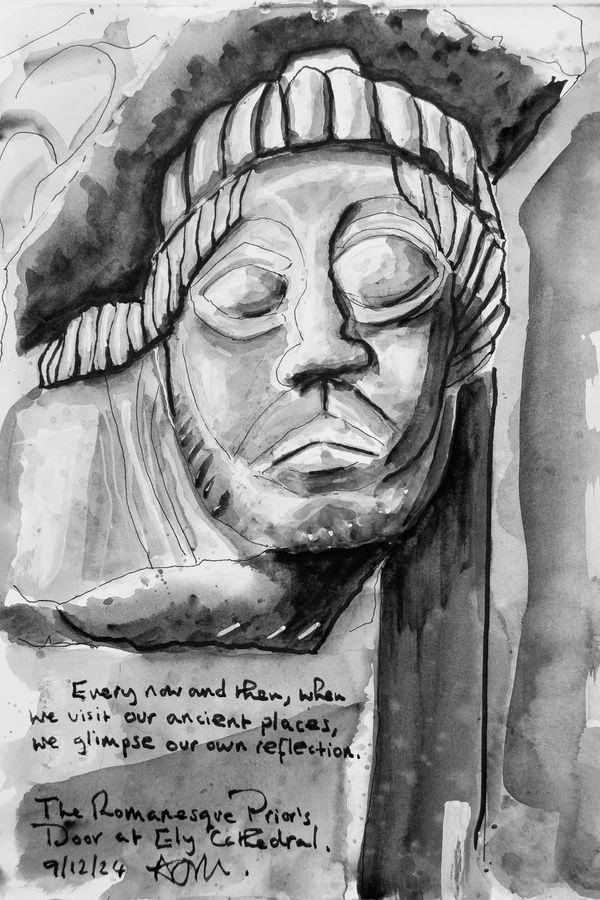 Every now and then, when
we visit our ancient places,
we glimpse our own reflection.
The Romanesque Prior's
Door at Ely Cathedral.
9/12/24